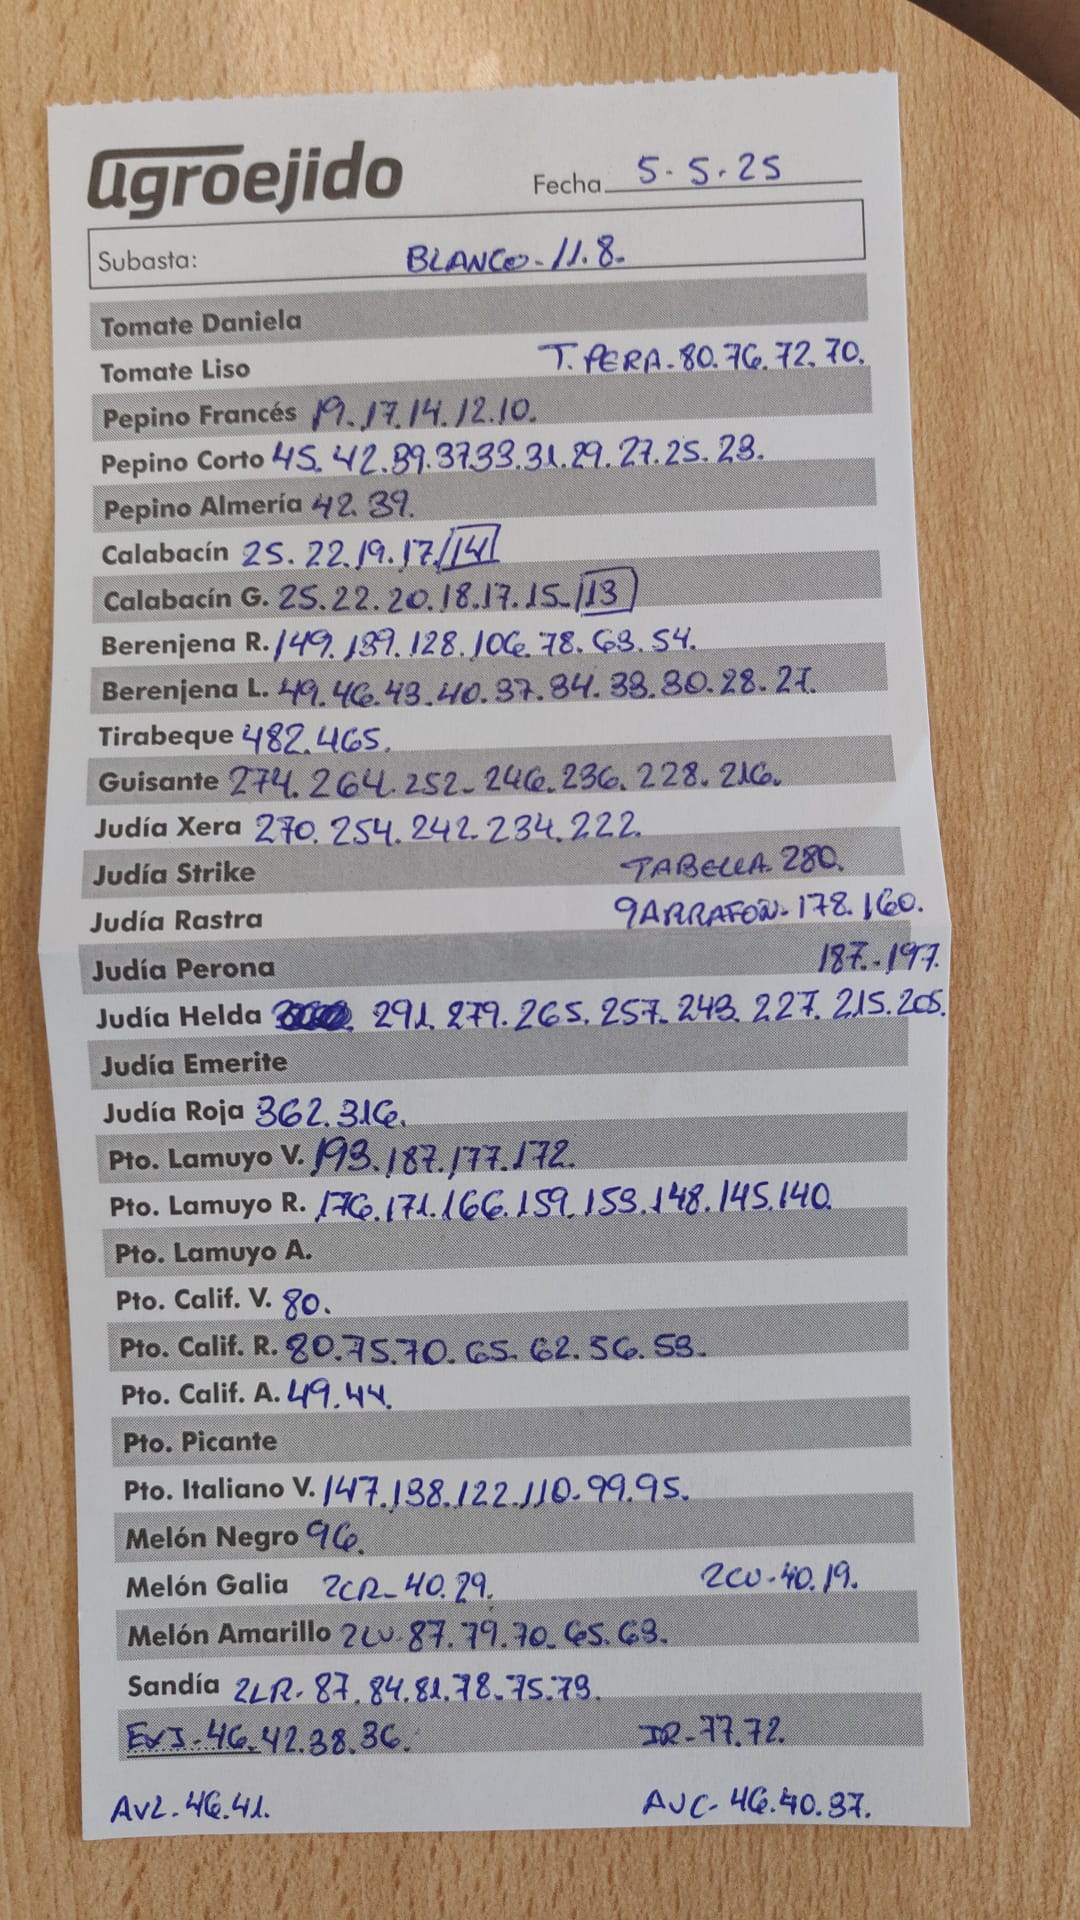 agroejido
Fecha 5-5-25
Subasta: BLANCO-11.8.
Tomate Daniela
Tomate Liso T. PERA-80.76.72.70.
Pepino Francés 19.17.14.12.10.
Pepino Corto 45.42.39.37.33.31.29.27.25.23.
Pepino Almería 42.39.
Calabacín 25.22.19.17/14
Calabacín G. 25.22.20.18.17.15-/13
Berenjena R. 149.139.128.106.78.63.54.
Berenjena L. 49.46.43.40.37.34.33.30.28.27.
Tirabeque 482.465.
Guisante 274.264.252-246.236.228.216.
Judía Xera 270.254.242.234.222.
Judía Strike TABELLA-280.
Judía Rastra GARRAFON-178.160.
Judía Perona 187.-197.
Judía Helda 291.279.265.257.243.227.215.205.
Judía Emerite
Judía Roja 362.316.
Pto. Lamuyo V. 193.187.177.172.
Pto. Lamuyo R. 176.171.166.159.153.148.145.140.
Pto. Lamuyo A.
Pto. Calif. V. 80.
Pto. Calif. R. 80.75.70.65.62.56.53.
Pto. Calif. A. 49.44.
Pto. Picante
Pto. Italiano V. 147.138.122.110.99.95.
Melón Negro 96.
Melón Galia 2CR-40.29. 2CU-40.19.
Melón Amarillo 2LV-87.79.70.65.63.
Sandía 2LR-87.84.81.78.75.73.
46.42.38.36. IR-77.72.
AVL-46.41. AVC-46.40.37.